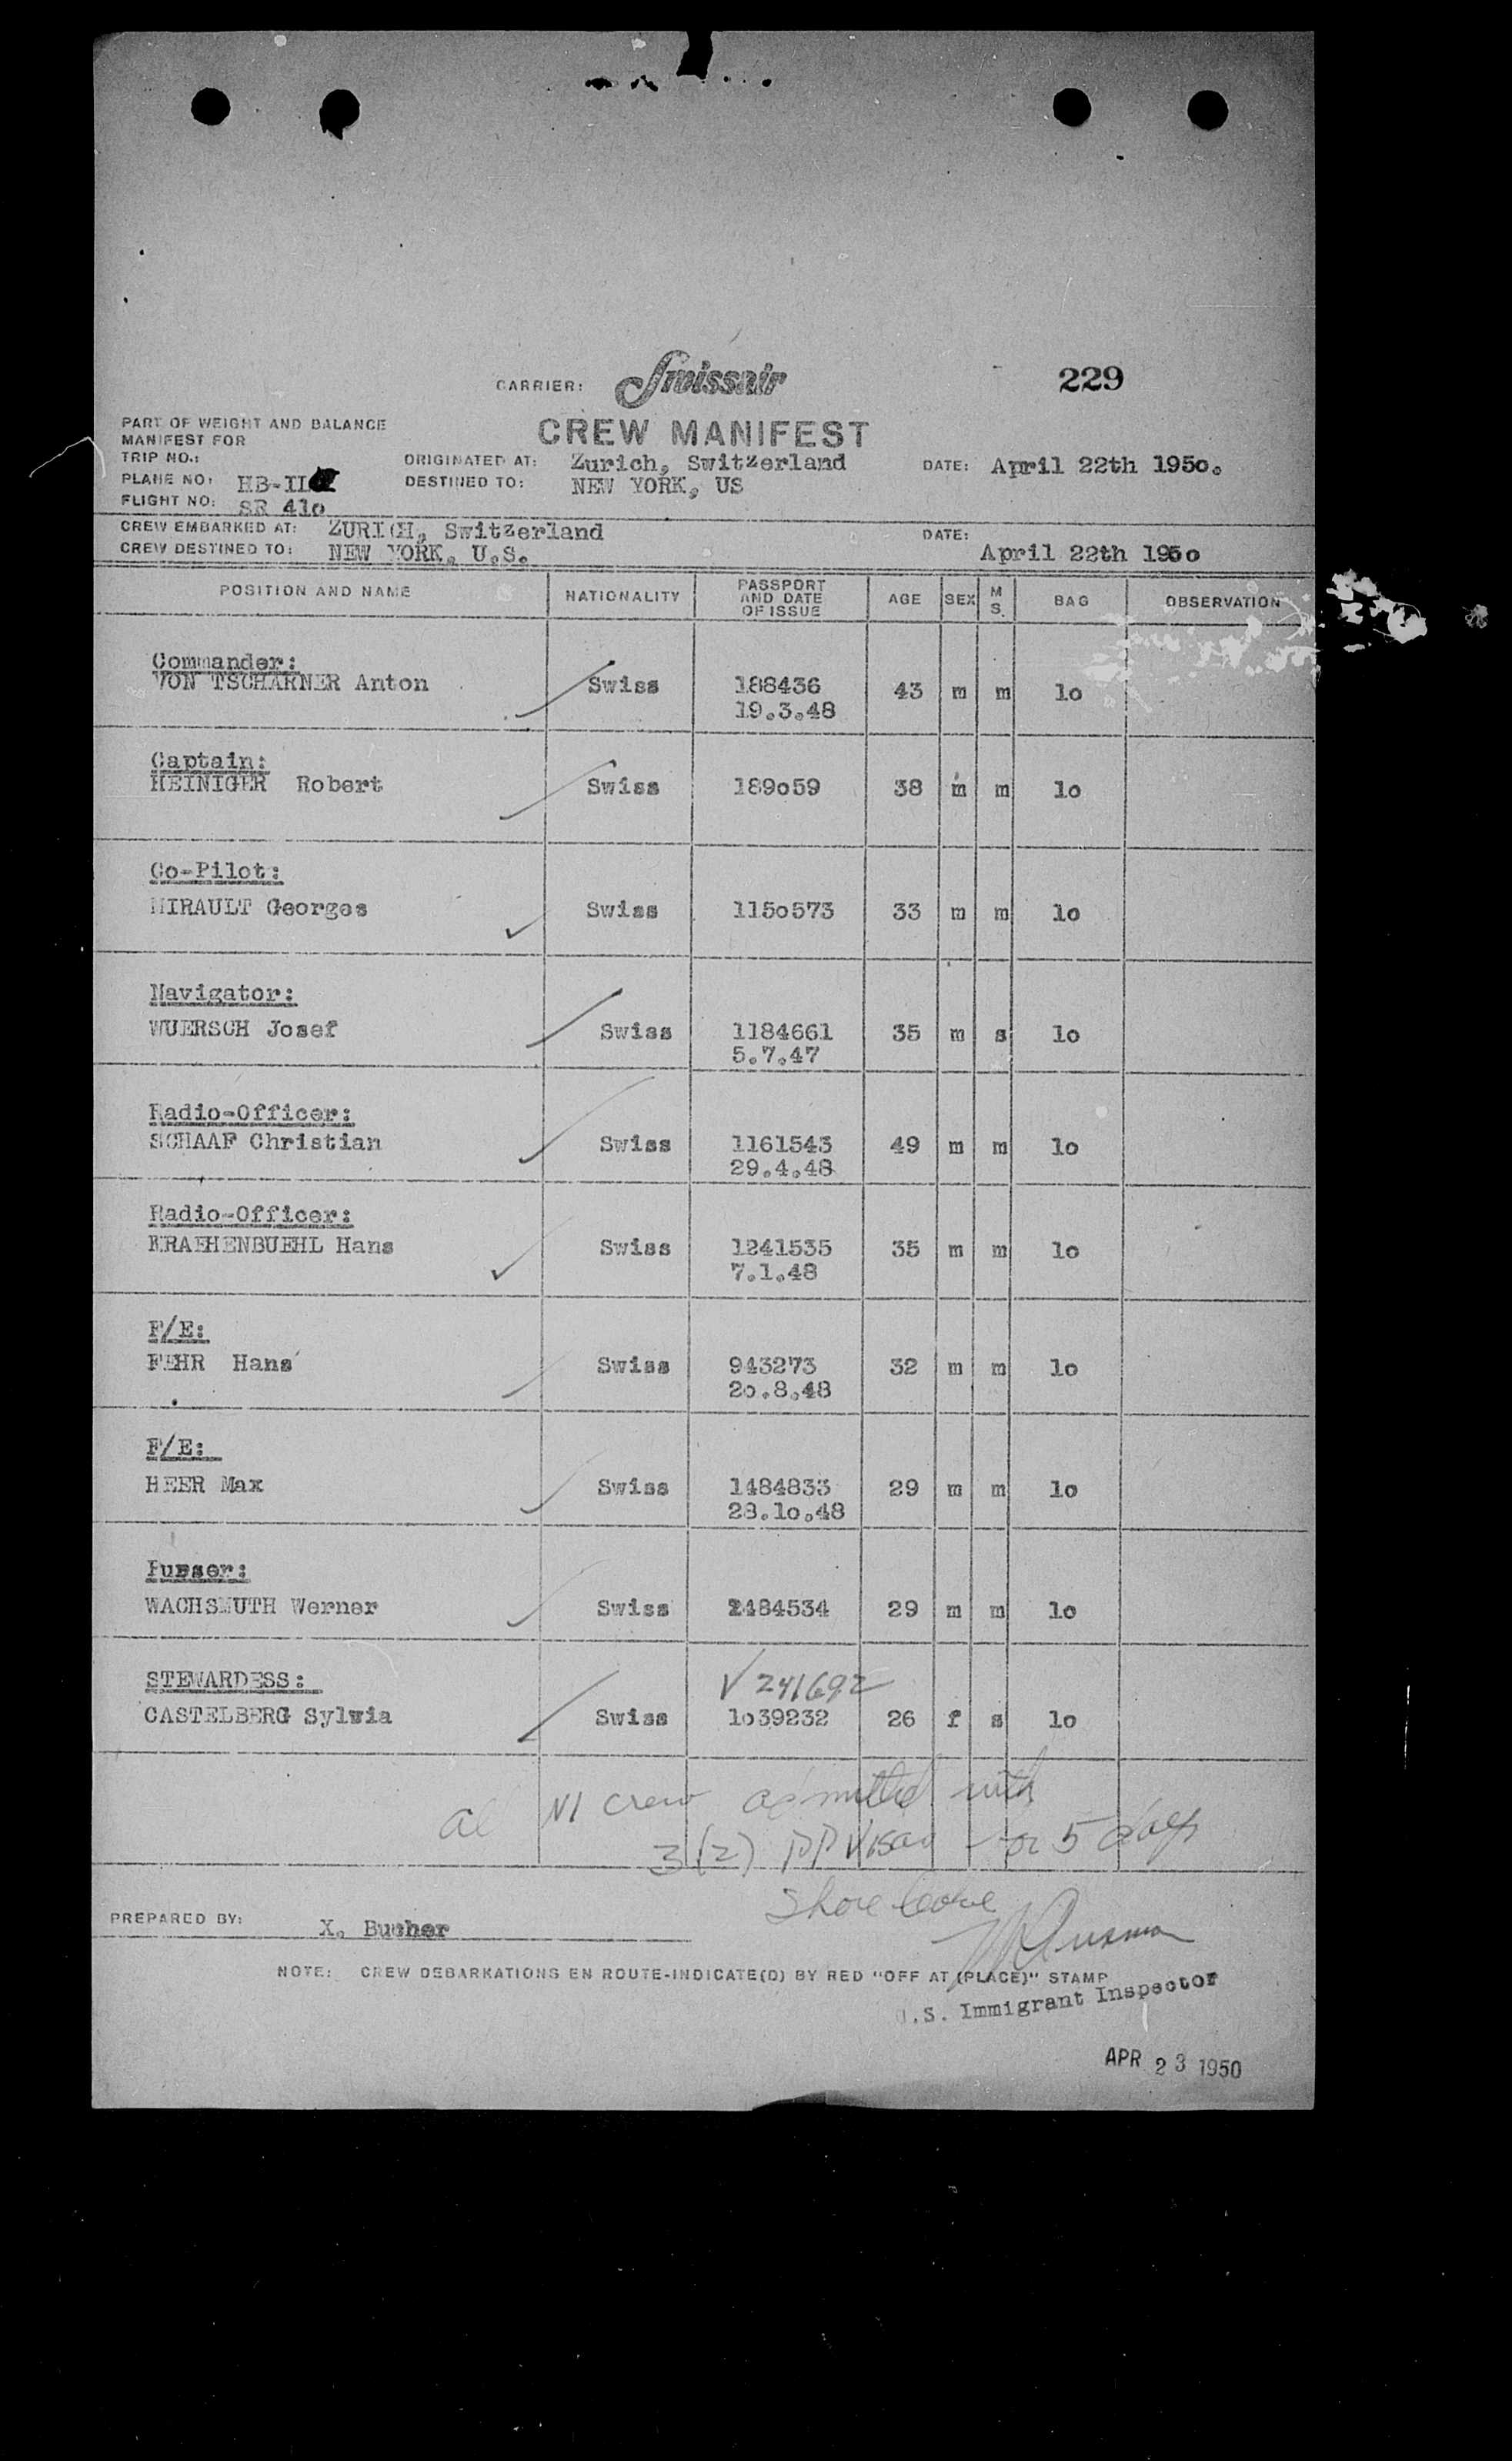 CARRIER: Swissair 229
PART OF WEIGHT AND BALANCE
MANIFEST FOR
CREW MANIFEST
TRIP NO.:
ORIGINATED AT: Zurich, Switzerland DATE: April 22th 195o.
PLANE NO: HB-II
DESTINED TO: NEW YORK, US
FLIGHT NO: SR 41o
CREW EMBARKED AT: ZURICH, Switzerland DATE:
CREW DESTINED TO: NEW YORK, U.S. April 22th 195o
POSITION AND NAME NATIONALITY PASSPORT AND DATE OF ISSUE AGE SEX M S. BAG OBSERVATION
Commander:
VON TSCHARNER Anton Swiss 188436 43 m m lo
19.3.48
Captain:
HEINIGER Robert Swiss 189o59 38 m m lo
Co-Pilot:
MIRAULT Georges Swiss 115o573 33 m m lo
Navigator:
WUERSCH Josef Swiss 1184661 35 m s lo
5.7.47
Radio-Officer:
SCHAAF Christian Swiss 1161543 49 m m lo
29.4.48
Radio-Officer:
KRAEHENBUEHL Hans Swiss 1241535 35 m m lo
7.1.48
F/E:
FEHR Hans Swiss 943273 32 m m lo
2o.8.48
F/E:
HEER Max Swiss 1484833 29 m m lo
28.lo.48
Purser:
WACHSMUTH Werner Swiss 1484534 29 m m lo
STEWARDESS: V 241692
CASTELBERG Sylvia Swiss lo39232 26 f s lo
al crew admitted with
3(2) PP Visas for 5 days
Shore leave
PREPARED BY: X. Bucher
NOTE: CREW DEBARKATIONS EN ROUTE-INDICATE(D) BY RED "OFF AT (PLACE)" STAMP
U.S. Immigrant Inspector
APR 23 1950